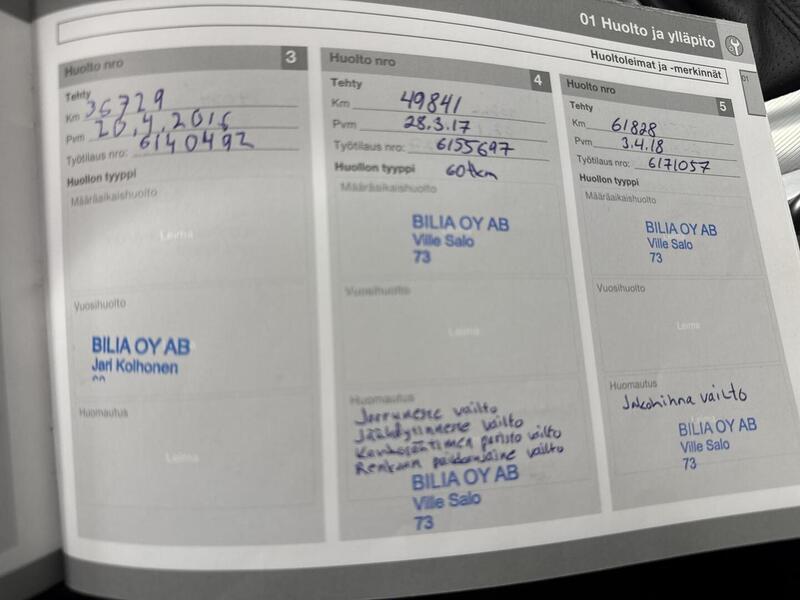 01 Huolto ja ylläpito
Huoltoleimat ja -merkinnät
01
Huolto nro 3
Tehty
Km 36729
Pvm 20.4.2016
Työtilaus nro: 6140492
Huollon tyyppi
Määräaikaishuolto
Leima
Vuosihuolto
BILIA OY AB
Jari Kolhonen
Huomautus
Leima
Huolto nro 4
Tehty
Km 49841
Pvm 28.3.17
Työtilaus nro: 6155697
Huollon tyyppi 60tkm
Määräaikaishuolto
BILIA OY AB
Ville Salo
73
Vuosihuolto
Leima
Huomautus
Jarruneste vaihto
Jäähdytinneste vaihto
Kaukosäätimen paristo vaihto
Renkaan paikkausaine vaihto
BILIA OY AB
Ville Salo
73
Huolto nro 5
Tehty
Km 61828
Pvm 3.4.18
Työtilaus nro: 6171057
Huollon tyyppi
Määräaikaishuolto
BILIA OY AB
Ville Salo
73
Vuosihuolto
Leima
Huomautus
Jakohihna vaihto
BILIA OY AB
Ville Salo
73